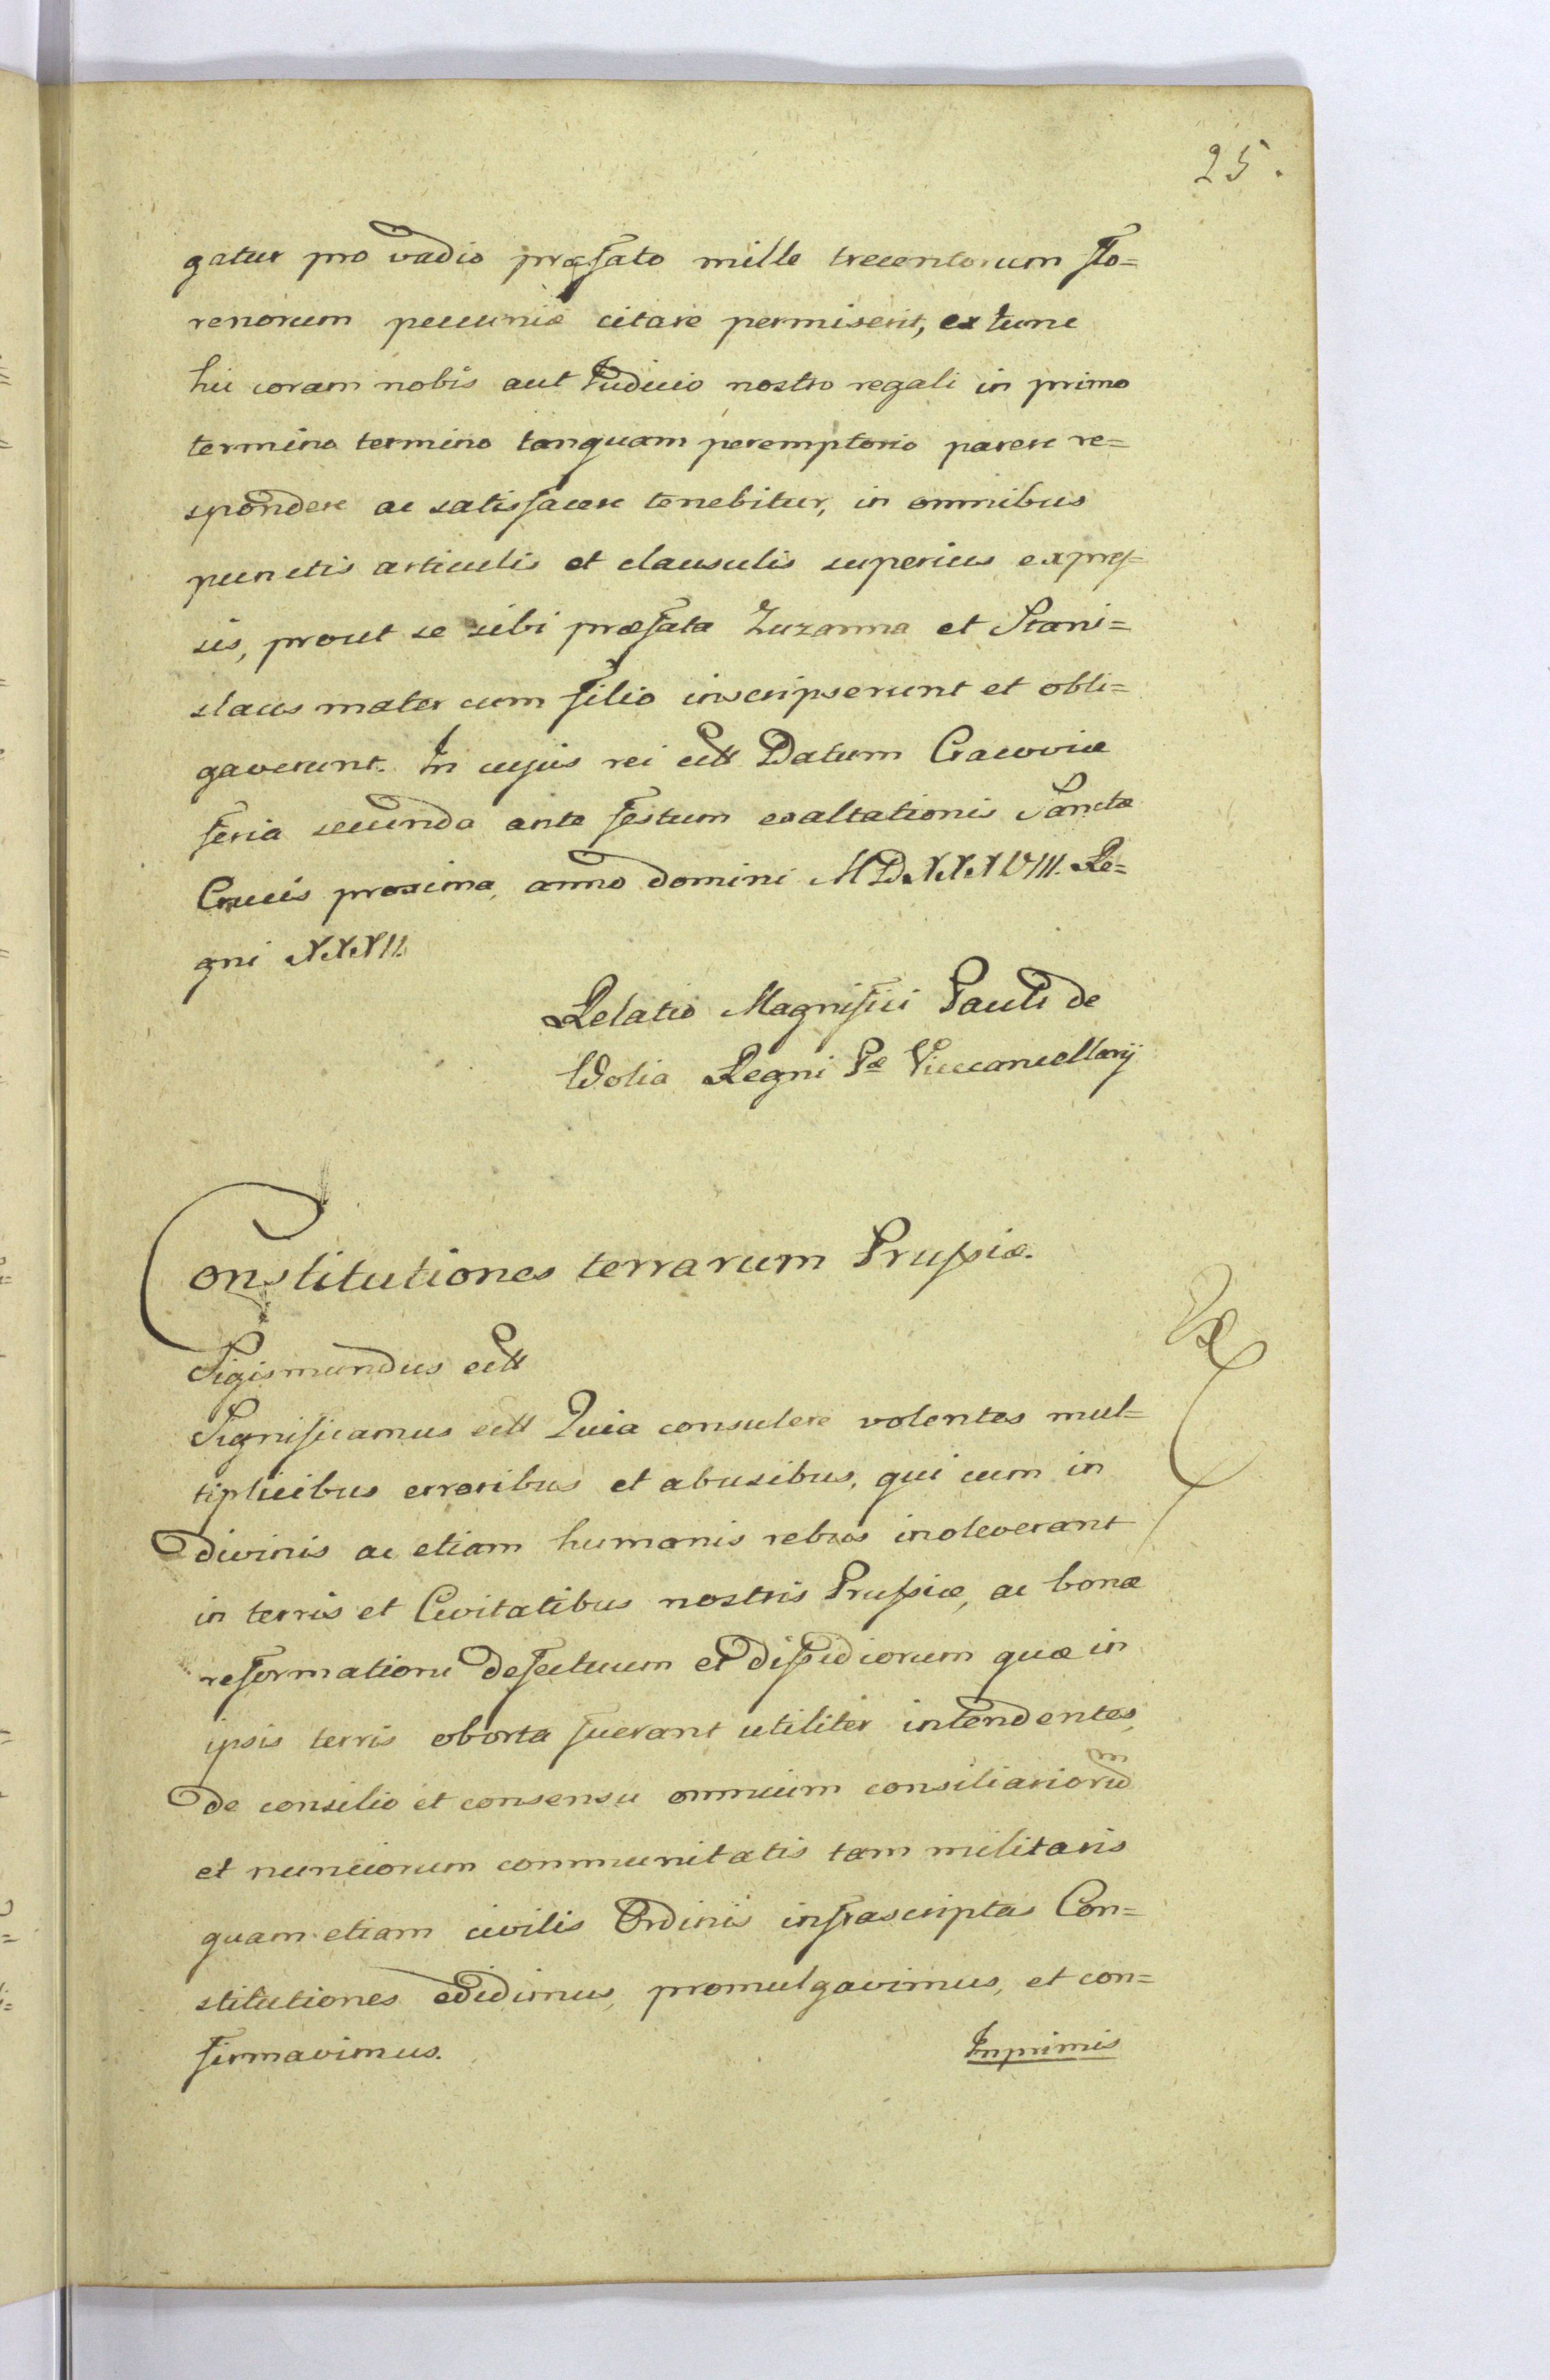 25.
gatur pro vadio præfato mille trecentorum flo=
renorum pecuniæ citare permiserit, ex tunc
hic coram nobis aut Judicio nostro regali in primo
termino termino tanquam peremptorio parere re=
spondere ac satisfacere tenebitur, in omnibus
punctis articulis et clausulis superius expres=
sis, prout se sibi præfata Zuzanna et Stani=
slaus mater cum filio inscripserunt et obli=
gaverunt. In cujus rei ett Datum Cracoviæ
feria secunda ante festum exaltationis Sanctæ
Crucis proxima, anno domini MDXXXVIII. Re=
gni XXXII.
Relatio Magnifici Pauli de
Wolia Regni Pæ Vicecancellarij
Constitutiones terrarum Prussiæ.
Sigismundus ett
Significamus ett Quia consulere volentes mul=
tiplicibus erroribus et abusibus, qui cum in
divinis ac etiam humanis rebus inoleverant
in terris et Civitatibus nostris Prussiæ, ac bonæ
reformationi defectuum et dissidiorum quæ in
ipsis terris oborta fuerant utiliter intendentes,
de consilio et consensu omnium consiliariorum
et nunciorum communitatis tam militaris
quam etiam civilis Ordinis infrascriptas Con=
stitutiones edidimus, promulgavimus, et con=
firmavimus.
Inprimis